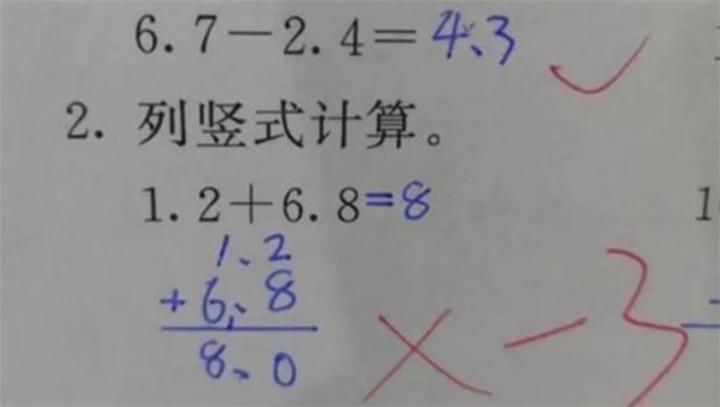 6.7－2.4＝4.3
2. 列竖式计算。
1.2＋6.8=8
1
1.2
+6.8
8.0
×－3